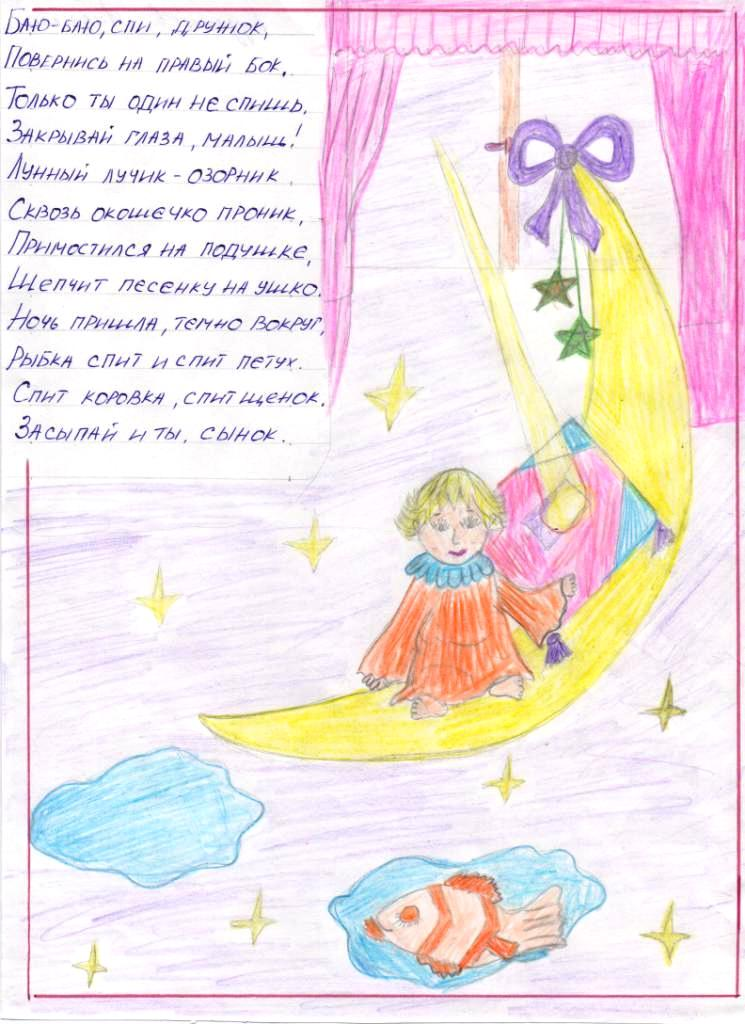 Баю-баю, спи, дружок,
Повернись на правый бок.
Только ты один не спишь.
Закрывай глаза, малыш!
Лунный лучик - озорник
Сквозь окошечко проник,
Примостился на подушке,
Шепчит песенку на ушко.
Ночь пришла, темно вокруг,
Рыбка спит и спит петух.
Спит коровка, спит щенок.
Засыпай и ты, сынок.